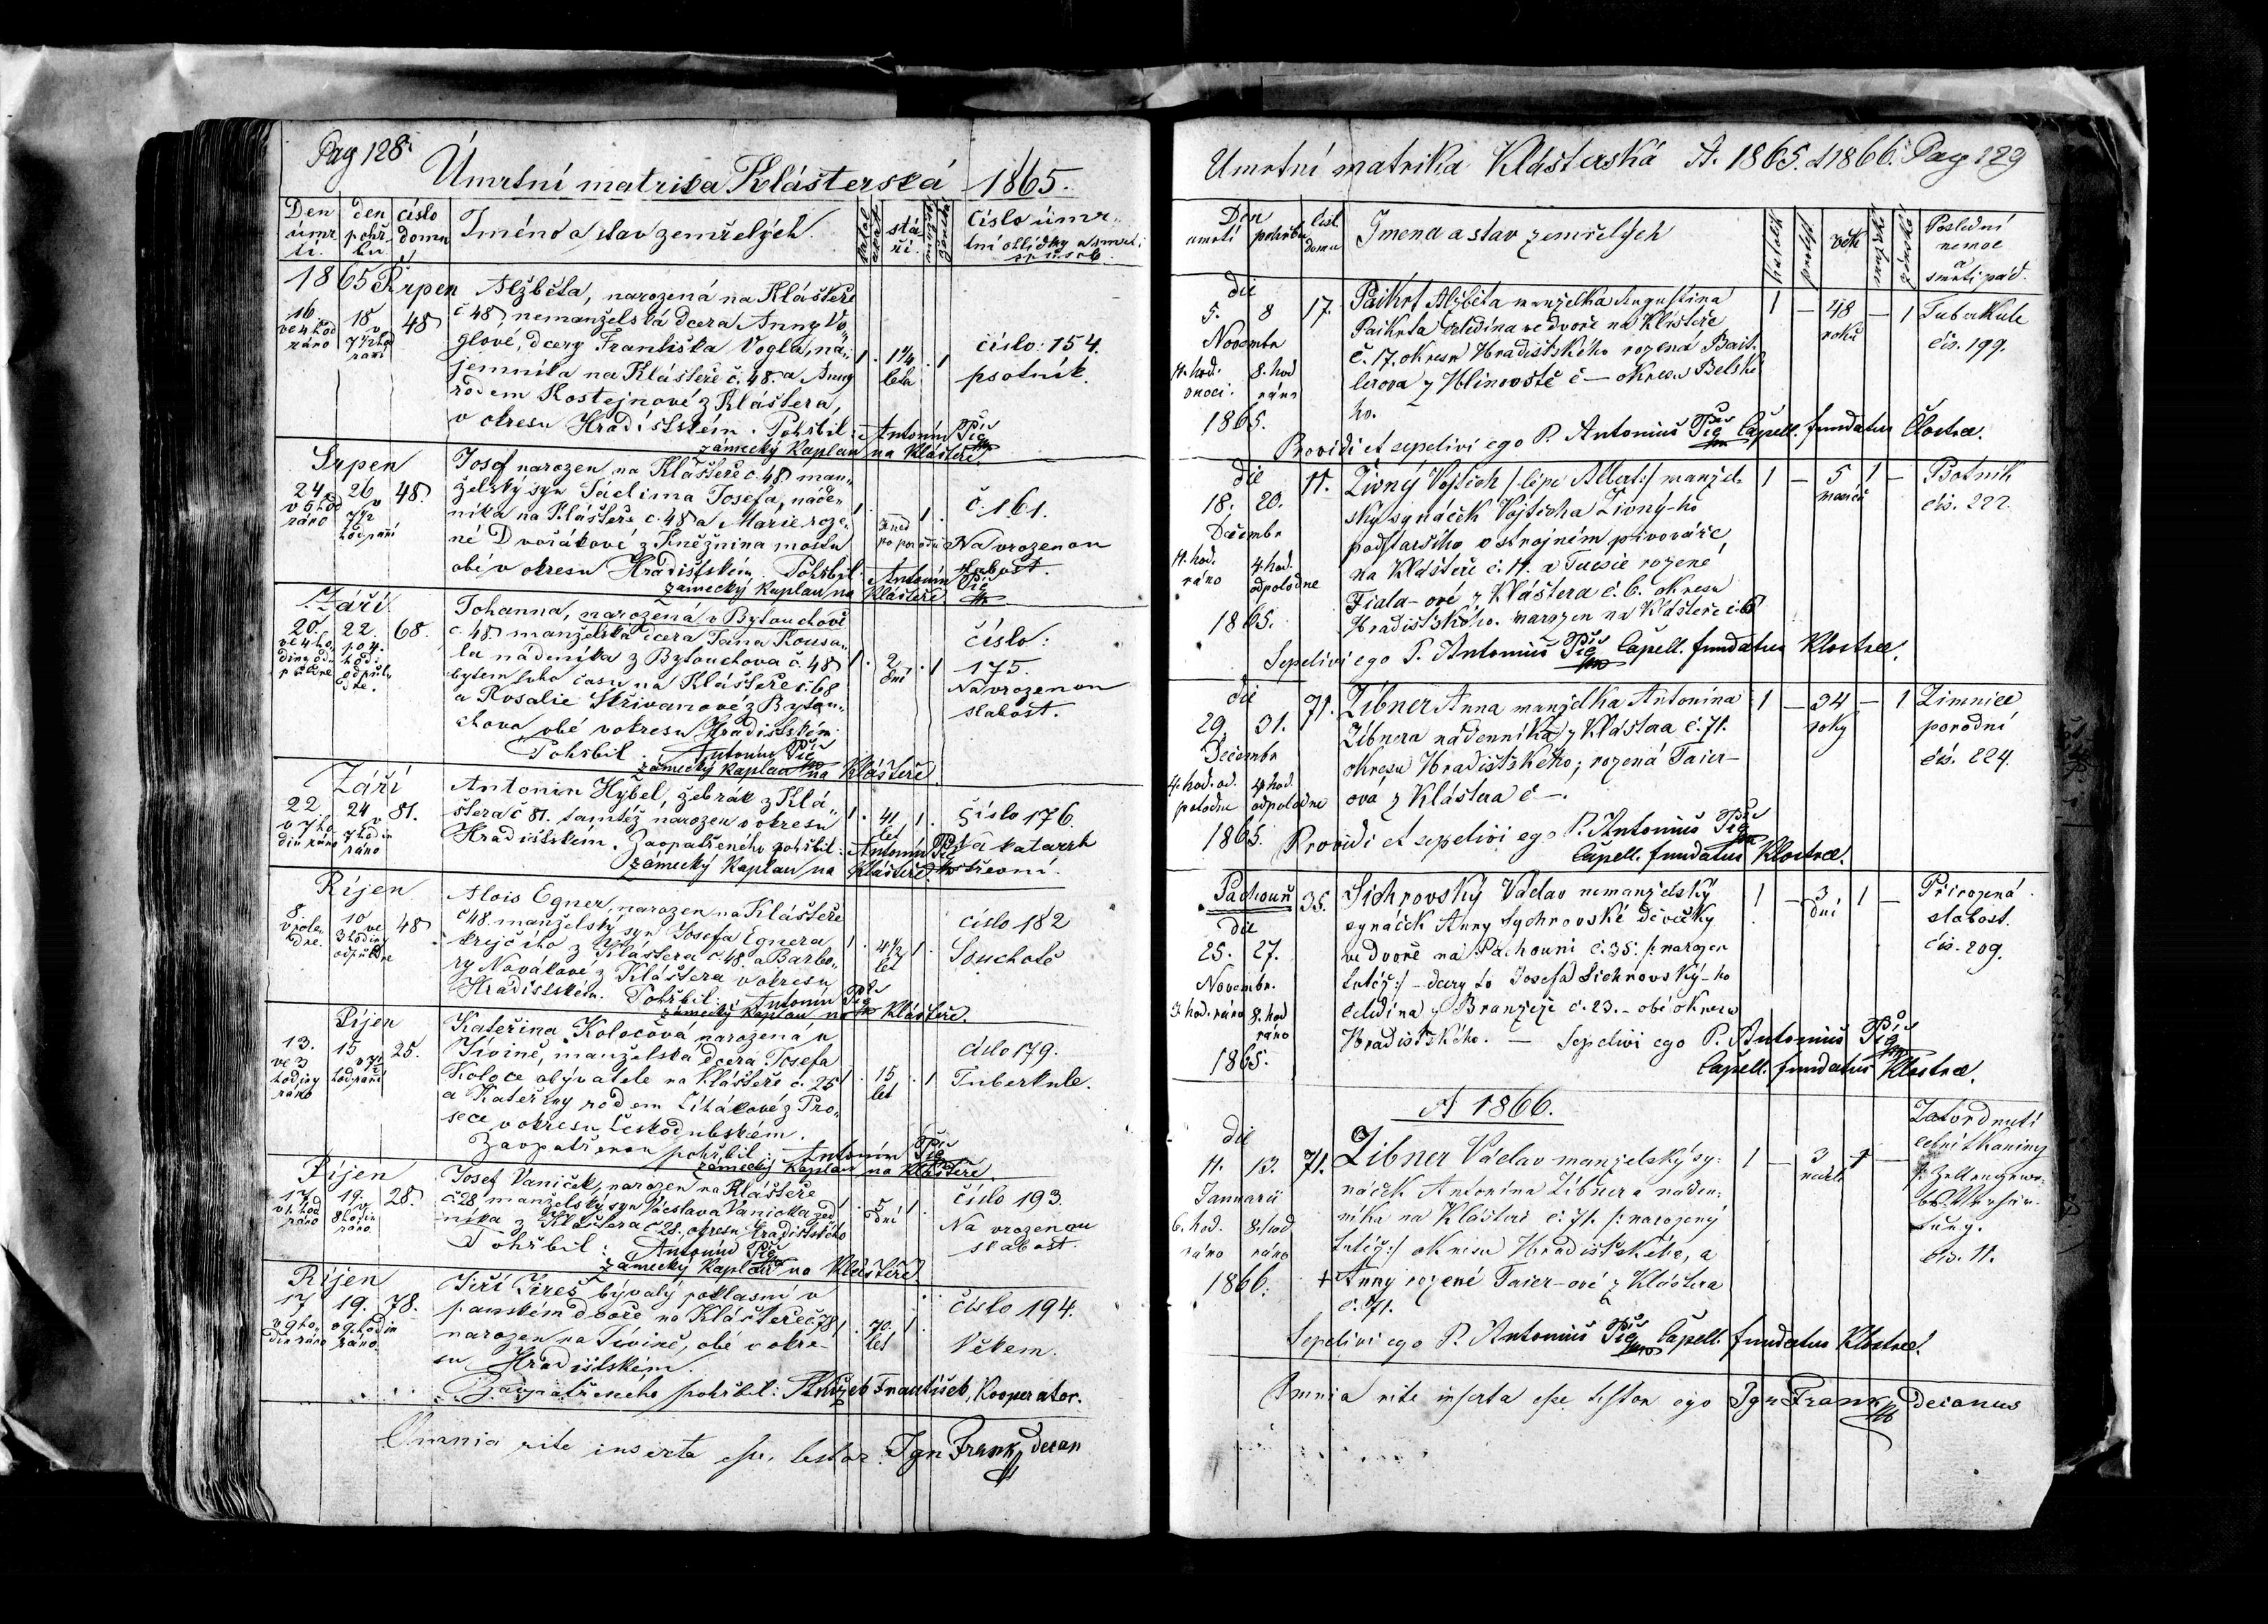 Pag 128.
Úmrtní matrika Klášterská 1865.
Den úmrtí
den pohřbu
číslo domu
Jméno a stav zemřelých.
stáří
číslo úmrtní ohlídky a smrti způsob
1865 Srpen
16 ve 4 hod ráno
18 v 7 1/2 hod ráno
48
Alžběta, narozená na Klášteře
č 48 nemanželská dcera Anny Vo-
glové, dcery Františka Vogla, ná-
jemníka na Klášteře č. 48. a Anny
rodem Kostejnové z Kláštera,
v okresu Hradištském. Pohřbil: Antonín Píč
zámecký kaplan na Klášteře.
1 1 1/4 leta 1
číslo: 154.
psotník.
Srpen
24 v 6 hod ráno
26 v 7 1/2 hod ranní
48.
Josef narozen na Klášteře č. 48 man-
želský syn Jáclima Josefa, náde-
níka na Klášteře č. 48 a Marie roze-
né Dvořákové z Kněžnina mostu
obé v okresu Hradištském. Pohřbil: Antonín Píč
zámecký kaplan na Klášteře
1 hned po porodu 1.
č. 161.
Na vrozenou
slabost.
Září
20. ve 4 hodiny odpůldne
22. po 4. hod. odpůldne.
68.
Johanna, narozená v Bytouchově
č. 48 manželská dcera Jana Kousa-
la nádeníka z Bytouchova č. 48
bytem toho času na Klášteře č. 68
a Rosalie Skřivanové z Bytou-
chova, obé v okresu Hradištském
Pohřbil: Antonín Píč
zámecký kaplan na Klášteře.
1. 2 dní . 1
číslo:
175.
Na vrozenou
slabost.
Září
22 v 7 hodin ráno
24 v 7 hodin ráno
81.
Antonín Hýbel, žebrák z Klá-
štera č 81. tamtéž narozen v okresu
Hradištském. Zaopatřeného pohřbil: Antonín Píč
zámecký kaplan na Klášteře.
1. 41 let 1.
číslo 176.
Na katarrh
střevní.
Říjen
8 v poledne.
10 ve 3 hodiny odpůldne
48
Alois Egner, narozen na Klášteře
č 48. manželský syn Josefa Egnera
krejčího z Kláštera č. 48. a Barbo-
ry Novákové z Kláštera v okresu
Hradištském. Pohřbil: Antonín Píč
zámecký kaplan na Klášteře.
1. 4 1/2 let 1.
číslo 182
Souchotě
Říjen
13. ve 3 hodiny ráno
15 v 7 1/2 hod ranní
25.
Kateřina Koločová, narozená v
Jivině, manželská dcera Josefa
Koloce obývatele na Klášteře č. 25
a Kateřiny rodem Litákové z Pro-
seče v okresu Českodubském.
Zaopatřenou pohřbil: Antonín Píč
zámecký kaplan na Klášteře.
1. 15 let . 1
číslo 179.
Tuberkule.
Říjen
17 v 1. hod ráno
19. v 8 hodin ráno.
28.
Josef Vaníček, narozen na Klášteře
č 28 manželský syn Václava Vaníčka zed-
níka z Kláštera č 28., okresu Hradištského
Pohřbil: Antonín Píč
zámecký kaplan na Klášteře
1. 5 dní 1.
číslo 193.
Na vrozenou
slabost.
Říjen
17 v 9 hodin ráno
19. v 9 hodin ráno.
78.
Jiří Jireš bývalý poklasní v
panském dvoře na Klášteře č 78
narozen na Jivině, obé v okre-
su Hradištském.
Zaopatřeného pohřbil: František, Kooperator.
1. 70. let 1.
číslo 194.
Věkem.
Omnia rite inserta esse, testor: Ign Frank decan
Umrtní matrika Klášterská A. 1865. & 1866. Pag 129
Den umrtí
pohřbu
čísl. domu
Jmena a stav zemřelých
katolík
protest.
věk
mužské
ženské
Poslední nemoc a smrti pád.
die
5. 8
Novembr
11. hod. v noci.
8. hod ráno
1865.
17.
Paikrt Alžběta manželka Augustina
Paikrta čeledína ve dvoře na Klášteře
č. 17. okresu Hradištského rozená Bait-
lerova z Hlinovště č — okresu Belské
ho.
Providi et sepelivi ego P. Antonius Píč Capell. fundatus Clostrae.
1 — 48 roků — 1
Tuberkule
čís. 199.
die
18. 20.
Decembr
11. hod. ráno
4 hod. odpoledne
1865.
11.
Živný Vojtěch /: lépe Albert :/ manžel-
ský synáček Vojtěcha Živný-ho
podstaršího v strojném pivováře,
na Klášteře č. 11. a Lucie rozené
Fiala-ové z Kláštera č. 6. okresu
Hradištského. narozen na Klášteře č. 6
Sepelivi ego P. Antonius Píč Capell. fundatus Klostrae.
1 — 5 měsíců 1 —
Psotník
čís. 222.
die
29. 31.
Decembr
4. hod. odpoledne
4 hod. odpoledne
1865.
71.
Zíbner Anna manželka Antonína
Zíbnera nádenníka z Kláštera č. 71.
okresu Hradištského; rozená Taier-
ová z Kláštera č —.
Providi et sepelivi ego P. Antonius Píč
Capell. fundatus Klostrae.
1 — 34 roky — 1
Zimnice
porodní
čís. 224.
Pachouň
die
25. 27.
Novembr.
3. hod. ráno
8. hod ráno
1865.
35.
Sichrovský Václav nemanželský
synáček Anny Sychrovské děvečky
ve dvoře na Pachouni č. 35: /: narozen
tutéž :/ – dcery to Josefa Sichrovský-ho
čeledína z Branžeže č. 23. – obé okresu
Hradištského. — Sepelivi ego P. Antonius Píč
Capell. fundatus Klostrae.
1 — 3 dní 1 —
Přirozená
slabost.
čís. 209.
A 1866.
die
11. 13.
Januarii
6. hod. ráno
8. hod ráno
1866.
71.
Zíbner Václav manželský sy-
náček Antonína Zíbnera náden-
níka na Klášteře č. 71. /: narozený
tutéž :/ okresu Hradištského, a
+ Anny rozené Taier-ové z Kláštera
č. 71.
Sepelivi ego P. Antonius Píč Capell. fundatus Klostrae.
1 — 3 neděle 1 —
Zatvrdnutí
čís. 11.
Omnia rite inserta esse testor ego Ign Frank Decanus